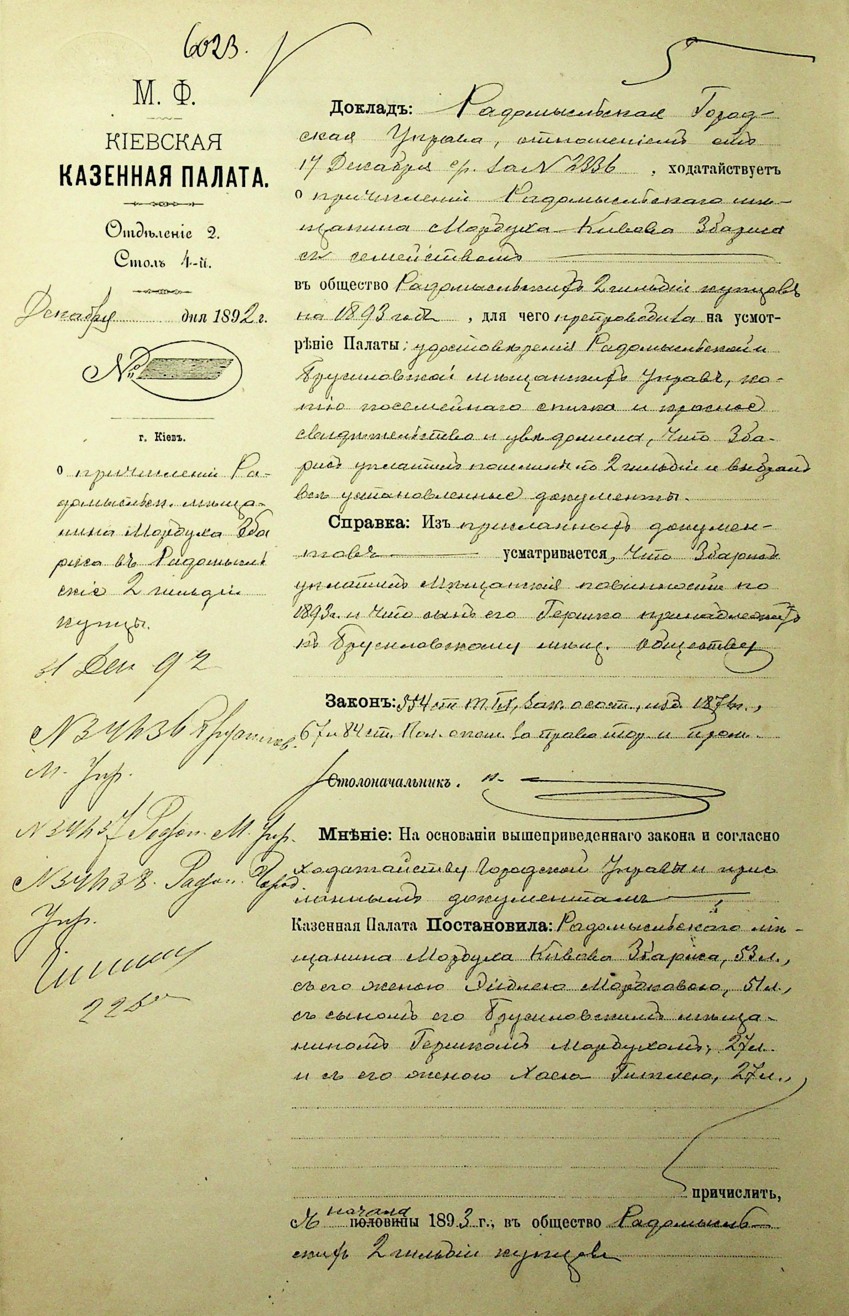 6023.
5
М. Ф.
КІЕВСКАЯ
КАЗЕННАЯ ПАЛАТА.
Отдѣленіе 2.
Столъ 4-й.
Декабря дня 1892 г.
№
г. Кіевъ.
о причисленіи Ра-
домысльск. мѣща-
нина Мордуха Зба
риса въ Радомысль
скіе 2 гильдіи
купцы.
31 Дек 92
N 34436 Брусилов.
М. Упр.
N 34437 Радом. М. Упр.
N 34438. Радом. Город
Упр.
22
Докладъ: Радомысльская Город-
ская Управа, отношеніемъ отъ
17 Декабря с/г. за N 2336, ходатайствуетъ
о причисленіи Радомысльскаго мѣ-
щанина Мордуха Кивова Збариса
съ семействомъ
въ общество Радомысльскихъ 2 гильдіи купцовъ
на 1893 годъ, для чего препроводила на усмот-
рѣніе Палаты: удостовѣренія Радомысльской и
Брусиловской мѣщанскихъ Управъ, ко-
пію посемейнаго списка и
свидѣтельство и увѣдомила, что Зба-
рисъ уплатилъ пошлины по 2 гильдіи и выбралъ
всѣ установленные документы.
Справка: Изъ присланныхъ докумен-
товъ усматривается, что Збарисъ
уплатилъ мѣщанскія повинности по
1893 г. и что сынъ его Гершко принадлежитъ
къ Брусиловскому мѣщ. обществу
Законъ: 554 ст. т. IX, Зак. о сост., изд. 1876 г.,
67 и 84 ст. Пол. о пош. за право тор. и пром.
Столоначальникъ.
Мнѣніе: На основаніи вышеприведеннаго закона и согласно
ходатайству Городской Управы и прис
ланнымъ документамъ
Казенная Палата Постановила: Радомысльскаго мѣ-
щанина Мордуха Кивова Збариса, 53 л.,
съ его женою Мордковою, 51 л.,
съ сыномъ его Брусиловскимъ мѣща-
ниномъ Гершкомъ Мордухомъ, 27 л.
и съ его женою Хаею Гитлею, 27 л.,
причислить,
начала
съ половины 1893 г., въ общество Радомысль-
скихъ 2 гильдіи купцовъ